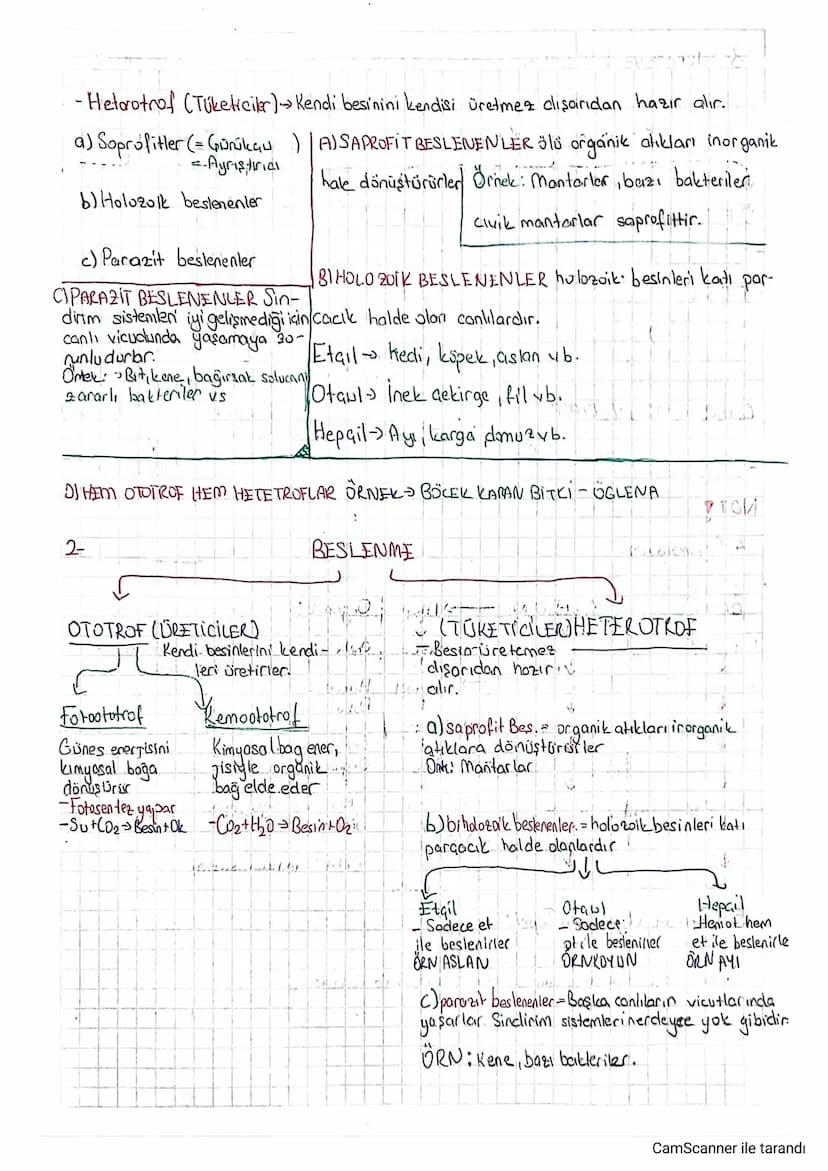 - Heterotrof (Tüketiciler)→ Kendi besinini kendisi üretmez dışarıdan hazır alır.
a) Saprofitler (= Çürükçü )
= Ayrıştırıcı
b) Holozoik beslenenler
c) Parazit beslenenler
A) SAPROFİT BESLENENLER ölü organik atıkları inorganik
hale dönüştürürler
Örnek: Mantarlar, bazı bakteriler
cıvık mantarlar saprofittir.
B) HOLOZOİK BESLENENLER holozoik besinleri katı par-
cacık halde olan canlılardır.
Etçil → kedi, köpek, aslan vb.
Otçul → İnek çekirge, fil vb.
Hepçil → Ayı, karga domuz vb.
C) PARAZİT BESLENENLER Sin-
dirim sistemleri iyi gelişmediği için
canlı vücudunda yaşamaya zo-
runludurlar.
Örnek: → Bit, kene, bağırsak solucanı
zararlı bakteriler vs
D) HEM OTOTROF HEM HETETROFLAR ÖRNEK → BÖCEK KAPAN BİTKİ - ÖGLENA
2- BESLENME
OTOTROF (ÜRETİCİLER)
Kendi besinlerini kendi-
leri üretirler.
Fotoototrof
Güneş enerjisini
kimyasal bağa
dönüştürür
- Fotosentez yapar
- Su+CO2 → Besin+Ok
Kemoototrof
Kimyasal bağ ener,
jisiyle organik
bağ elde eder
- CO2+H2O → Besin+O2
(TÜKETİCİLER) HETEROTROF
- Besin üretemez
dışarıdan hazır
alır.
a) saprofit Bes. = organik atıkları inorganik
atıklara dönüştürürler
Örn: Mantarlar
b) biholozoik beslenenler. = holozoik besinleri katı
parçacık halde olanlardır
Etçil
- Sadece et
ile beslenirler
ÖRN ASLAN
Otçul
- Sadece
ot ile beslenirler
ÖRN KOYUN
Hepçil
- Hem ot hem
et ile beslenirle
ÖRN AYI
c) parazit beslenenler = Başka canlıların vücutlarında
yaşarlar. Sindirim sistemleri nerdeyse yok gibidir.
ÖRN: Kene, bazı bakteriler.
CamScanner ile tarandı